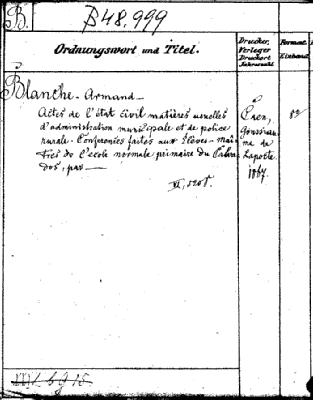 B. B48.999
Ordnungswort und Titel.
Drucker,
Verleger
Druckort
Jahreszahl
Format.
Einband
Blanche, Armand
Actes de l'état civil matières usuelles
d'administration municipale et de police
rurale. Conférences faites aux élèves-maî-
tres de l'école normale primaire du Calva-
dos, par —
Caen,
de
Laporte
1867.
8°